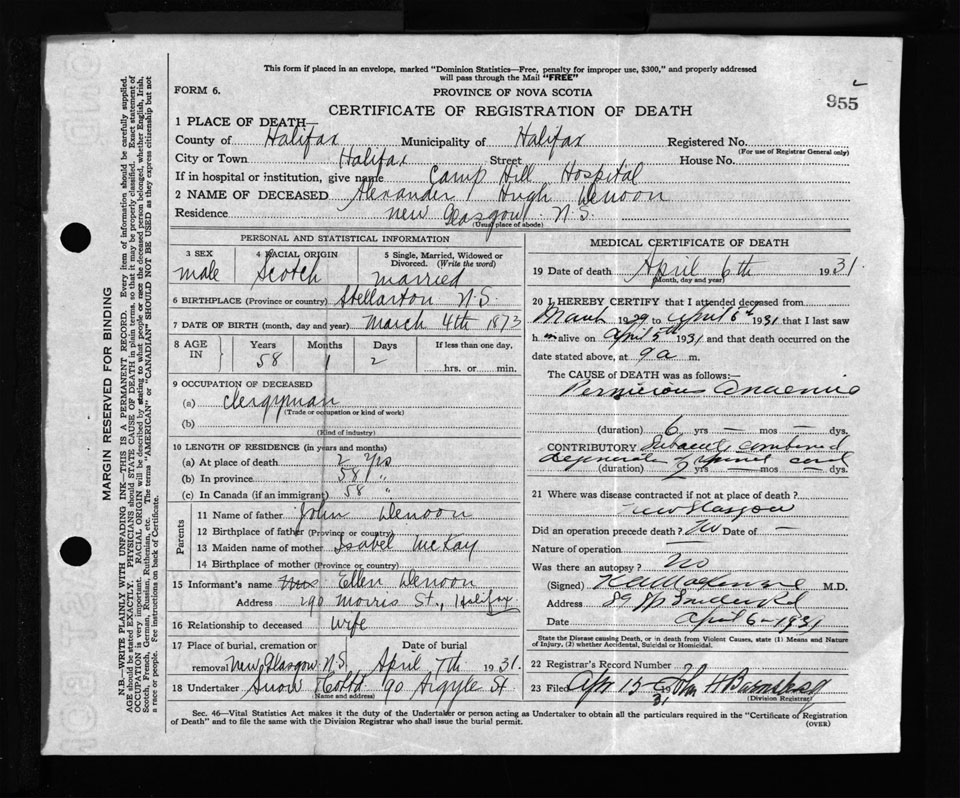 This form if placed in an envelope, marked "Dominion Statistics—Free, penalty for improper use, $300," and properly addressed
will pass through the Mail "FREE"
FORM 6.
PROVINCE OF NOVA SCOTIA
955
CERTIFICATE OF REGISTRATION OF DEATH
1 PLACE OF DEATH—
County of Halifax Municipality of Halifax Registered No.
(For use of Registrar General only)
City or Town Halifax Street House No.
If in hospital or institution, give name Camp Hill Hospital
2 NAME OF DECEASED Alexander Hugh Denoon
Residence New Glasgow N.S.
(Usual place of abode)
PERSONAL AND STATISTICAL INFORMATION
3 SEX male
4 RACIAL ORIGIN Scotch
5 Single, Married, Widowed or Divorced. (Write the word) married
6 BIRTHPLACE (Province or country) Stellarton N.S.
7 DATE OF BIRTH (month, day and year) March 4th 1873
8 AGE IN Years 58 Months 1 Days 2 If less than one day, hrs. or min.
9 OCCUPATION OF DECEASED
(a) Clergyman
(Trade or occupation or kind of work)
(b)
(Kind of industry)
10 LENGTH OF RESIDENCE (in years and months)
(a) At place of death 2 yrs
(b) In province 58 "
(c) In Canada (if an immigrant) 58 "
Parents
11 Name of father John Denoon
12 Birthplace of father (Province or country)
13 Maiden name of mother Isabel McKay
14 Birthplace of mother (Province or country)
15 Informant's name Mrs Ellen Denoon
Address 190 Morris St., Halifax
16 Relationship to deceased wife
17 Place of burial, cremation or removal New Glasgow N.S. Date of burial April 7th 1931.
18 Undertaker Snow & Co Ltd 90 Argyle St
(Name and address)
MEDICAL CERTIFICATE OF DEATH
19 Date of death April 6th 1931.
(Month, day and year)
20 I HEREBY CERTIFY that I attended deceased from
March 1929 to April 6th 1931 that I last saw
h im alive on April 5th 1931 and that death occurred on the
date stated above, at 9 a m.
The CAUSE of DEATH was as follows:—
Pernicious Anaemia
(duration) 6 yrs — mos — dys.
CONTRIBUTORY Subacute combined
degeneration of spinal cord
(duration) 2 yrs — mos — dys.
21 Where was disease contracted if not at place of death?
New Glasgow
Did an operation precede death? No Date of —
Nature of operation
Was there an autopsy? No
(Signed) MacKenzie M.D.
Address 89 Rd
Date April 6 - 1931
State the Disease causing Death, or in death from Violent Causes, state (1) Means and Nature
of Injury, (2) whether Accidental, Suicidal or Homicidal.
22 Registrar's Record Number
23 Filed Apr 15 1931 John H Barnstead
(Division Registrar)
Sec. 46—Vital Statistics Act makes it the duty of the Undertaker or person acting as Undertaker to obtain all the particulars required in the "Certificate of Registration
of Death" and to file the same with the Division Registrar who shall issue the burial permit.
(OVER)
MARGIN RESERVED FOR BINDING
N.B.—WRITE PLAINLY WITH UNFADING INK—THIS IS A PERMANENT RECORD. Every item of information should be carefully supplied.
AGE should be stated EXACTLY. PHYSICIANS should STATE CAUSE OF DEATH in plain terms, so that it may be properly classified. Exact statement of
OCCUPATION is very important. RACIAL ORIGIN will be described by stating to what people or race the deceased person belonged, whether English, Irish,
Scotch, French, German, Russian, Ruthenian, etc. The terms "AMERICAN" or "CANADIAN" SHOULD NOT BE USED as they express citizenship but not
a race or people. See instructions on back of Certificate.